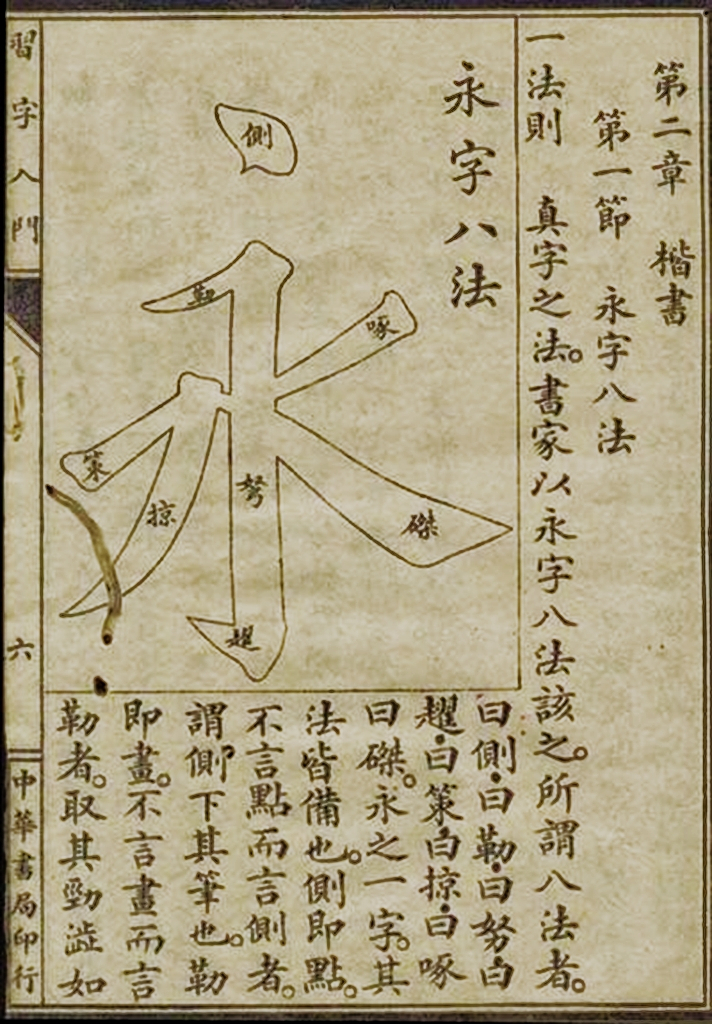 第二章　楷書
第一節　永字八法
一法則　真字之法。書家以永字八法該之。所謂八法者。
永字八法
側
勒
啄
策
掠
努
磔
趯
曰側・曰勒・曰努・曰
趯・曰策・曰掠・曰啄
曰磔。永之一字。其
法皆備也。側即點。
不言點而言側者。
謂側下其筆也。勒
即畫。不言畫而言
勒者。取其勁澁如
習字入門
六
中華書局印行